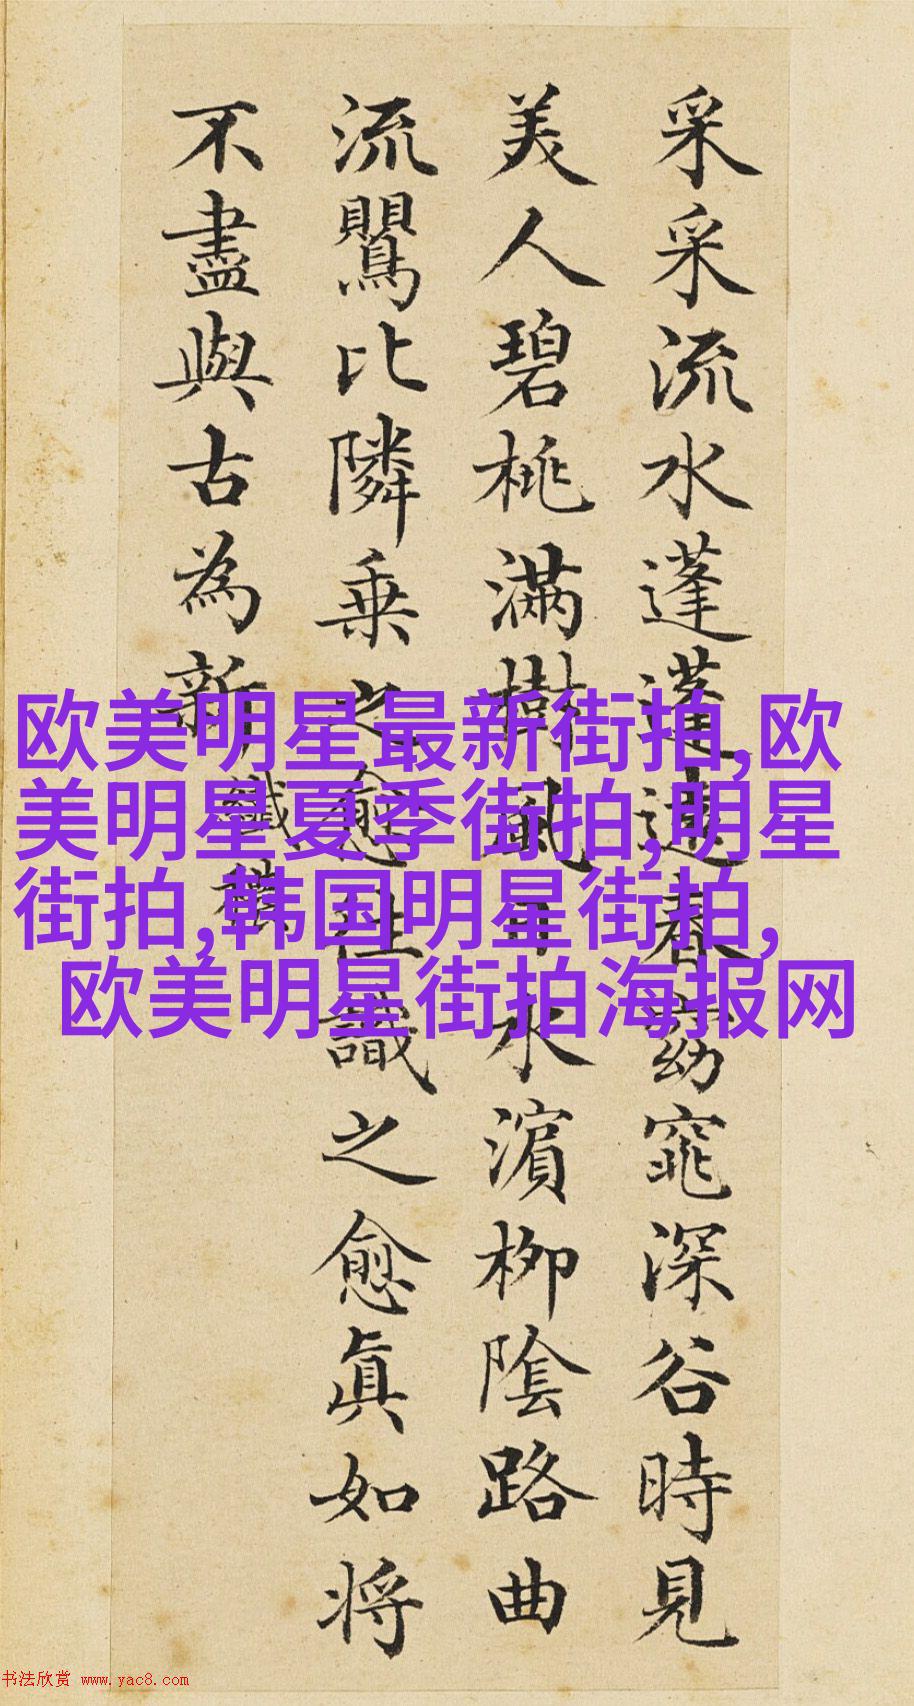 采采流水蓬蓬遠春窈窕深谷時見
美人碧桃滿樹風日水濱柳陰路曲
流鸎比隣乗之愈往識之愈眞如将
不盡與古為新
纖穠
欧美明星最新街拍,欧
美明星夏季街拍,明星
街拍,韩国明星街拍,
欧美明星街拍海报网
书法欣赏 www.yac8.com